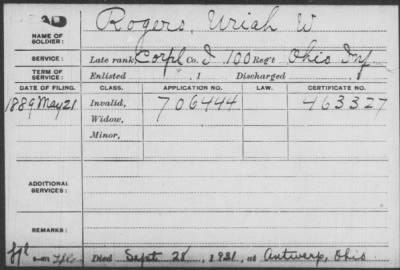 NAME OF SOLDIER: Rogers, Uriah W.
SERVICE: Late rank, Corpl Co. I, 100 Reg't Ohio Inf
TERM OF SERVICE: Enlisted , 1 Discharged , 1
DATE OF FILING. CLASS. APPLICATION NO. LAW. CERTIFICATE NO.
1889 May 21 Invalid, 706444 463327
Widow,
Minor,
ADDITIONAL SERVICES:
REMARKS:
Died Sept 28, 1931, at Antwerp, Ohio